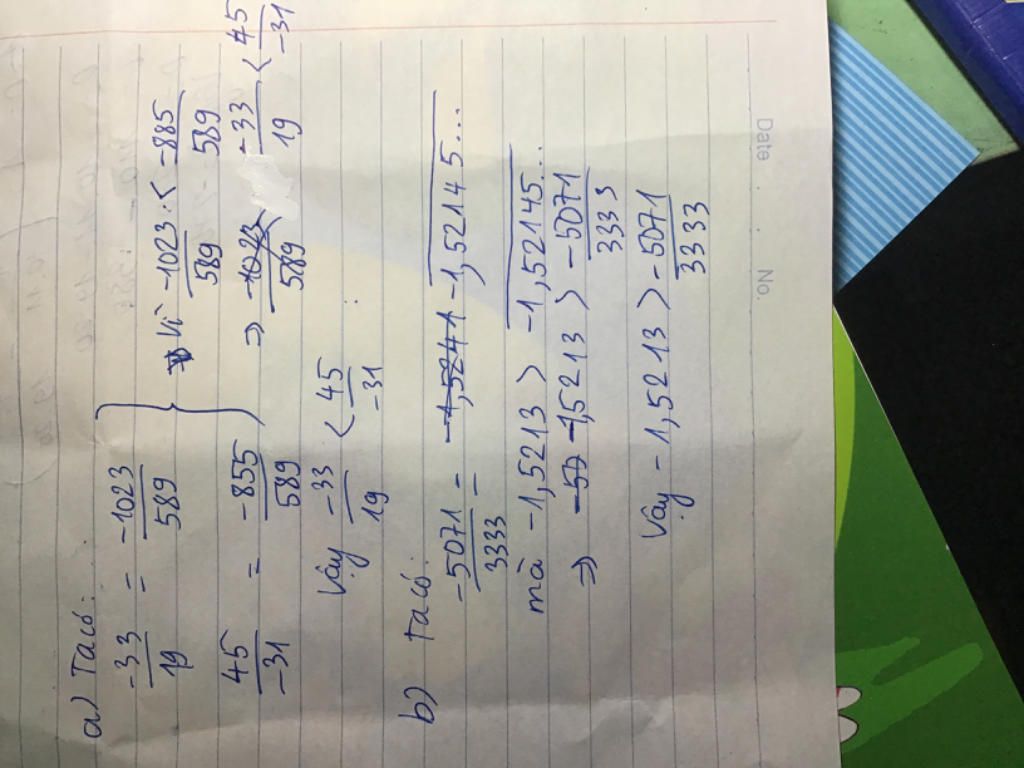 a) Ta có:
-33/19 = -1023/589
45/-31 = -855/589
Vì -1023/589 < -885/589
⇒ -33/19 < 45/-31
Vậy -33/19 < 45/-31
b) Ta có:
-5071/3333 = -1,52145...
mà -1,5213 > -1,52145...
⇒ -1,5213 > -5071/3333
Vậy -1,5213 > -5071/3333
Date . . No.